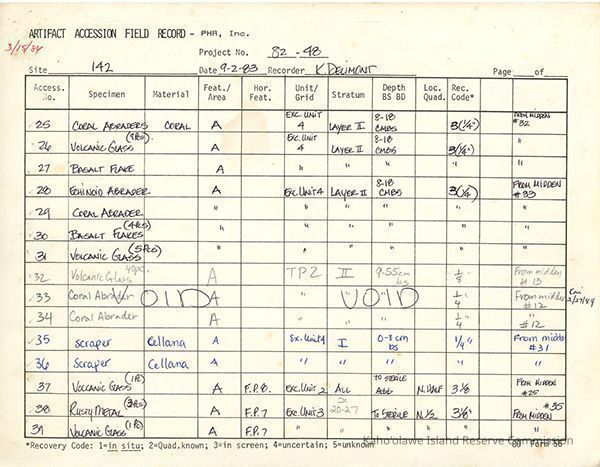 ARTIFACT ACCESSION FIELD RECORD - PHR, Inc.
3/15/84
Project No. 82-48
Site 142 Date 9-2-83 Recorder K. DELIMONT Page of
Access. No. Specimen Material Feat./Area Hor. Feat. Unit/Grid Stratum Depth BS BD Loc. Quad. Rec. Code*
25 CORAL ABRADERS CORAL A EXC. UNIT 4 LAYER II 8-18 CMBS 3(1/4") FROM MIDDEN #32
26 VOLCANIC GLASS A EXC. UNIT 4 LAYER II 8-18 CMBS 3(1/4") "
27 BASALT FLAKE A " " " " "
28 ECHINOID ABRADER A EXC. UNIT 4 LAYER II 8-18 CMBS 3(1/4) FROM MIDDEN #33
29 CORAL ABRADER " " " " " "
30 BASALT FLAKES (4PCS) " " " " " "
31 VOLCANIC GLASS (5PCS) " " " " " "
32 Volcanic Glass A TP2 II 9-55cm bs 1/8 From midden #13
33 Coral Abrader A " " " 1/4 From midden #12 2/27/84
VOID
34 Coral Abrader A " " " 1/4 " #12
35 Scraper Cellana A Ex. Unit 4 I 0-8 cm bs 1/4" From midd #31
36 Scraper Cellana A " " " " "
37 VOLCANIC GLASS (1PC) A F.P. 8. EXC. UNIT 2 ALL TO STERILE N. HALF 3 1/8 FROM MIDDEN #25
38 RUSTY METAL (3PCS) A F.P. 7 EXC. UNIT 3 20-27 TO STERILE N. 1/2 3 1/8" FROM MIDDEN #35
39 VOLCANIC GLASS (1PC) A F.P. 7 " " " " " "
*Recovery Code: 1=in situ; 2=Quad.known; 3=in screen; 4=uncertain; 5=unknown
80 Form 56
Kaho'olawe Island Reserve Commission